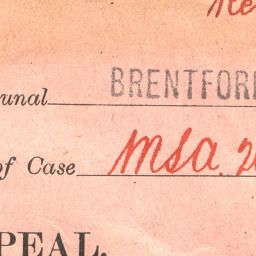 Re
unal BRENTFOR
of Case MSA. 2
PEAL.